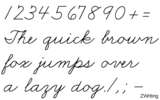 1234567890+=
The quick brown
fox jumps over
a lazy dog.!,;-
2Writing